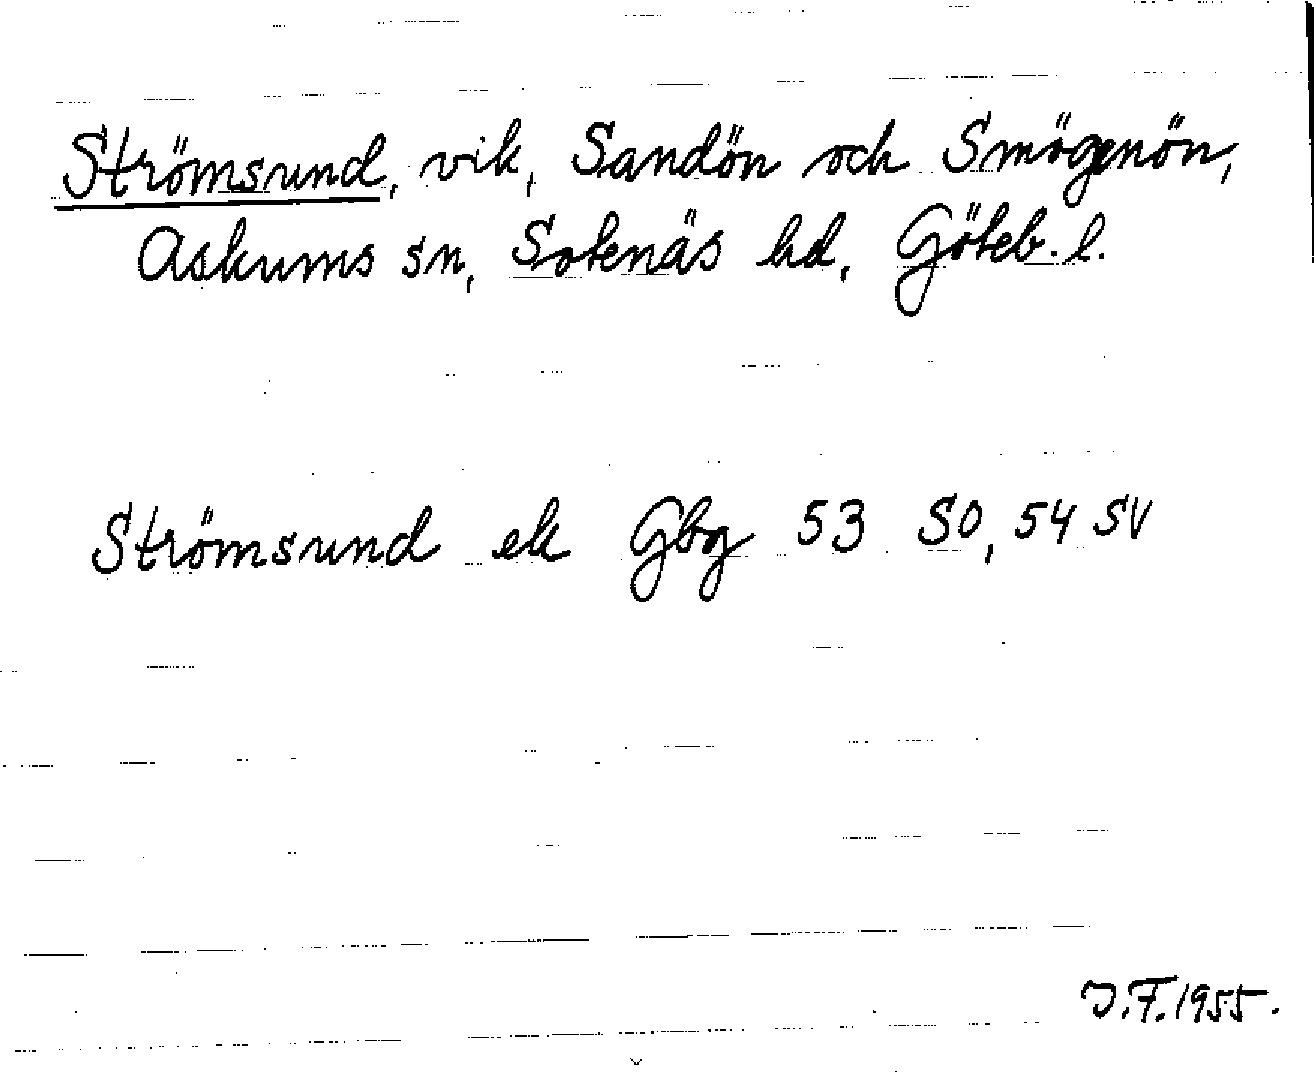 Strömsund, vik, Sandön och Smögenön,
Askums sn, Sotenäs hd, Göteb. l.
Strömsund ek Gbg 53 SO, 54 SV
J.F. 1955.